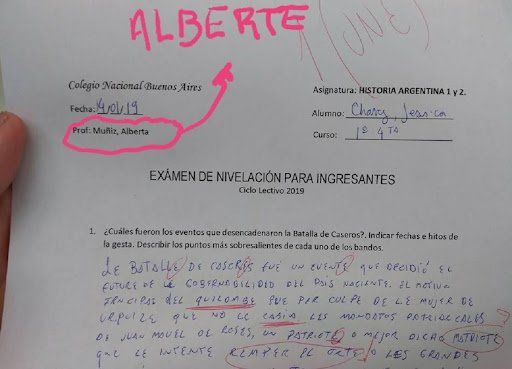 ALBERTE
1 (UNE)
Colegio Nacional Buenos Aires
Asignatura: HISTORIA ARGENTINA 1 y 2.
Fecha:
Alumno: Jessica
Prof: Muñiz, Alberta
Curso: 1º 4TA
EXÁMEN DE NIVELACIÓN PARA INGRESANTES
Ciclo Lectivo 2019
1. ¿Cuáles fueron los eventos que desencadenaron la Batalla de Caseros?. Indicar fechas e hitos de
la gesta. Describir los puntos más sobresalientes de cada uno de los bandos.
LE BATALLE DE CASERES FUÉ UN EVENTE QUE DECIDIÓ EL
FUTURE DE LA GOBERNABILIDED DEL PAIS NACIENTE. EL MOTIVE
PRINCIPAL DEL QUILOMBE FUE POR CULPE DE LE MUJER DE
URQUIZE QUE NO LE CABÍA LES MANDATOS PATRIARCALES
DE JUAN MANUEL DE ROSES, UN PATRIOTE O MEJOR DICHO MATRIOTE
QUE LE INTENTE REMPER EL ORTE A LES GRANDES